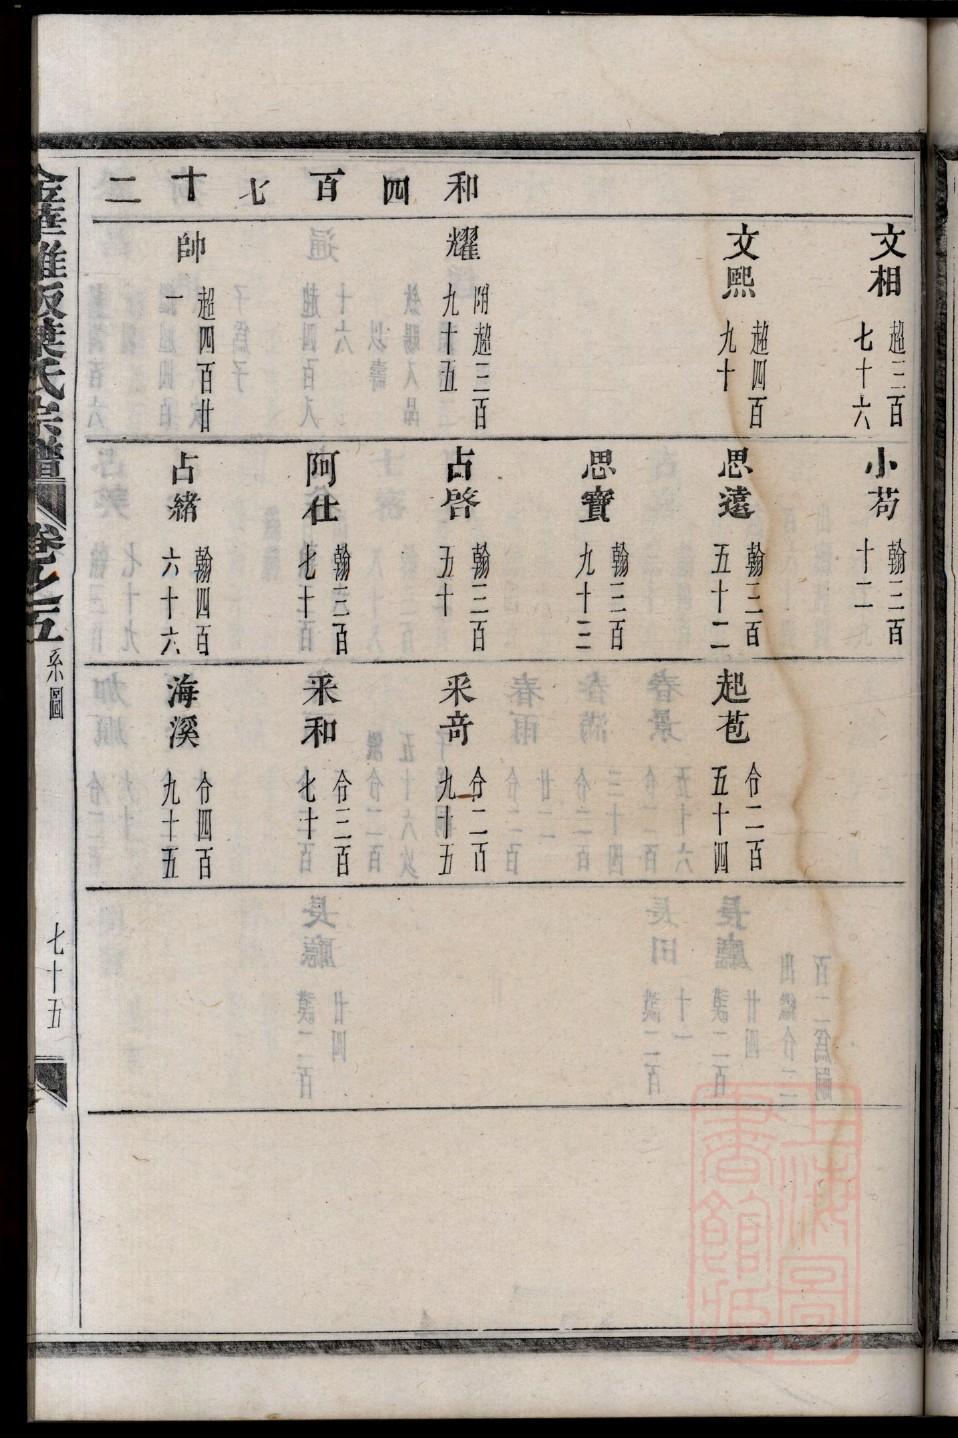 和四百七十二
文相 超三百七十六
文熙 超四百九十
耀 附超三百九十五
帥 超四百廿一
小苟 翰三百十二
思遠 翰三百五十二
思寶 翰三百九十三
占啓 翰三百五十
阿社 翰三百七十
占緒 翰四百六十六
起苞 台二百五十四
采奇 台二百九十五
采和 台三百七十
海溪 台四百九十五
葉氏宗譜 卷之五 系圖 七十五
上海圖書館藏